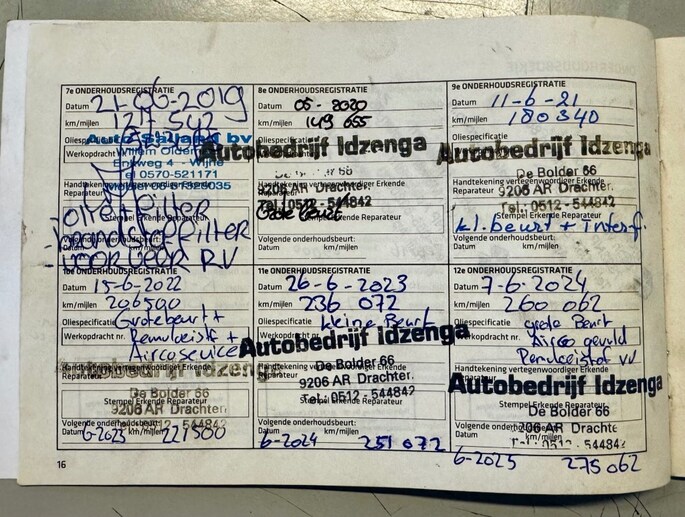 7e ONDERHOUDSREGISTRATIE
Datum 21-06-2019
km/mijlen 127 542
Auto Salland bv
Werkopdracht
Enkweg 4 - Wijhe
Tel 0570-521171
Handtekening vertegenwoordiger Erkende
Reparateur
Stempel Erkende Reparateur
Oliefilter
Brandstoffilter
voorveer RV
8e ONDERHOUDSREGISTRATIE
Datum 05-2020
km/mijlen 149 655
Autobedrijf Idzenga
De Bolder 66
Handtekening vertegenwoordiger Erkende
Reparateur
9206 AR Drachten
Tel.: 0512 - 544842
Grote Beurt
Volgende onderhoudsbeurt:
Datum km/mijlen
9e ONDERHOUDSREGISTRATIE
Datum 11-6-21
km/mijlen 180340
Oliespecificatie
Autobedrijf Idzenga
De Bolder 66
Handtekening vertegenwoordiger Erkende
Reparateur
9206 AR Drachten
Tel.: 0512 - 544842
Stempel Erkende Reparateur
kl. beurt + interf.
Volgende onderhoudsbeurt:
Datum km/mijlen
10e ONDERHOUDSREGISTRATIE
Datum 15-6-2022
km/mijlen 206500
Oliespecificatie Grote beurt +
Werkopdracht nr. Remvloeistof +
Aircoservice
Autobedrijf Idzenga
Handtekening vertegenwoordiger Erkende
Reparateur
De Bolder 66
Stempel Erkende Reparateur
9206 AR Drachten
Tel.: 0512 - 544842
Volgende onderhoudsbeurt:
Datum 6-2023 km/mijlen 221500
11e ONDERHOUDSREGISTRATIE
Datum 26-6-2023
km/mijlen 236 072
Oliespecificatie kleine Beurt
Werkopdracht nr.
Autobedrijf Idzenga
Handtekening vertegenwoordiger Erkende
Reparateur
De Bolder 66
9206 AR Drachten
Stempel Erkende Reparateur
Tel.: 0512 - 544842
Volgende onderhoudsbeurt:
Datum km/mijlen
6-2024 251 072
12e ONDERHOUDSREGISTRATIE
Datum 7-6-2024
km/mijlen 260 062
Oliespecificatie grote Beurt
Werkopdracht nr. Airco gevuld
Remvloeistof vv
Handtekening vertegenwoordiger Erkende
Reparateur
Autobedrijf Idzenga
Stempel Erkende Reparateur
De Bolder 66
9206 AR Drachten
Volgende onderhoudsbeurt:
Datum km/mijlen
Tel.: 0512 - 544842
6-2025 275 062
16